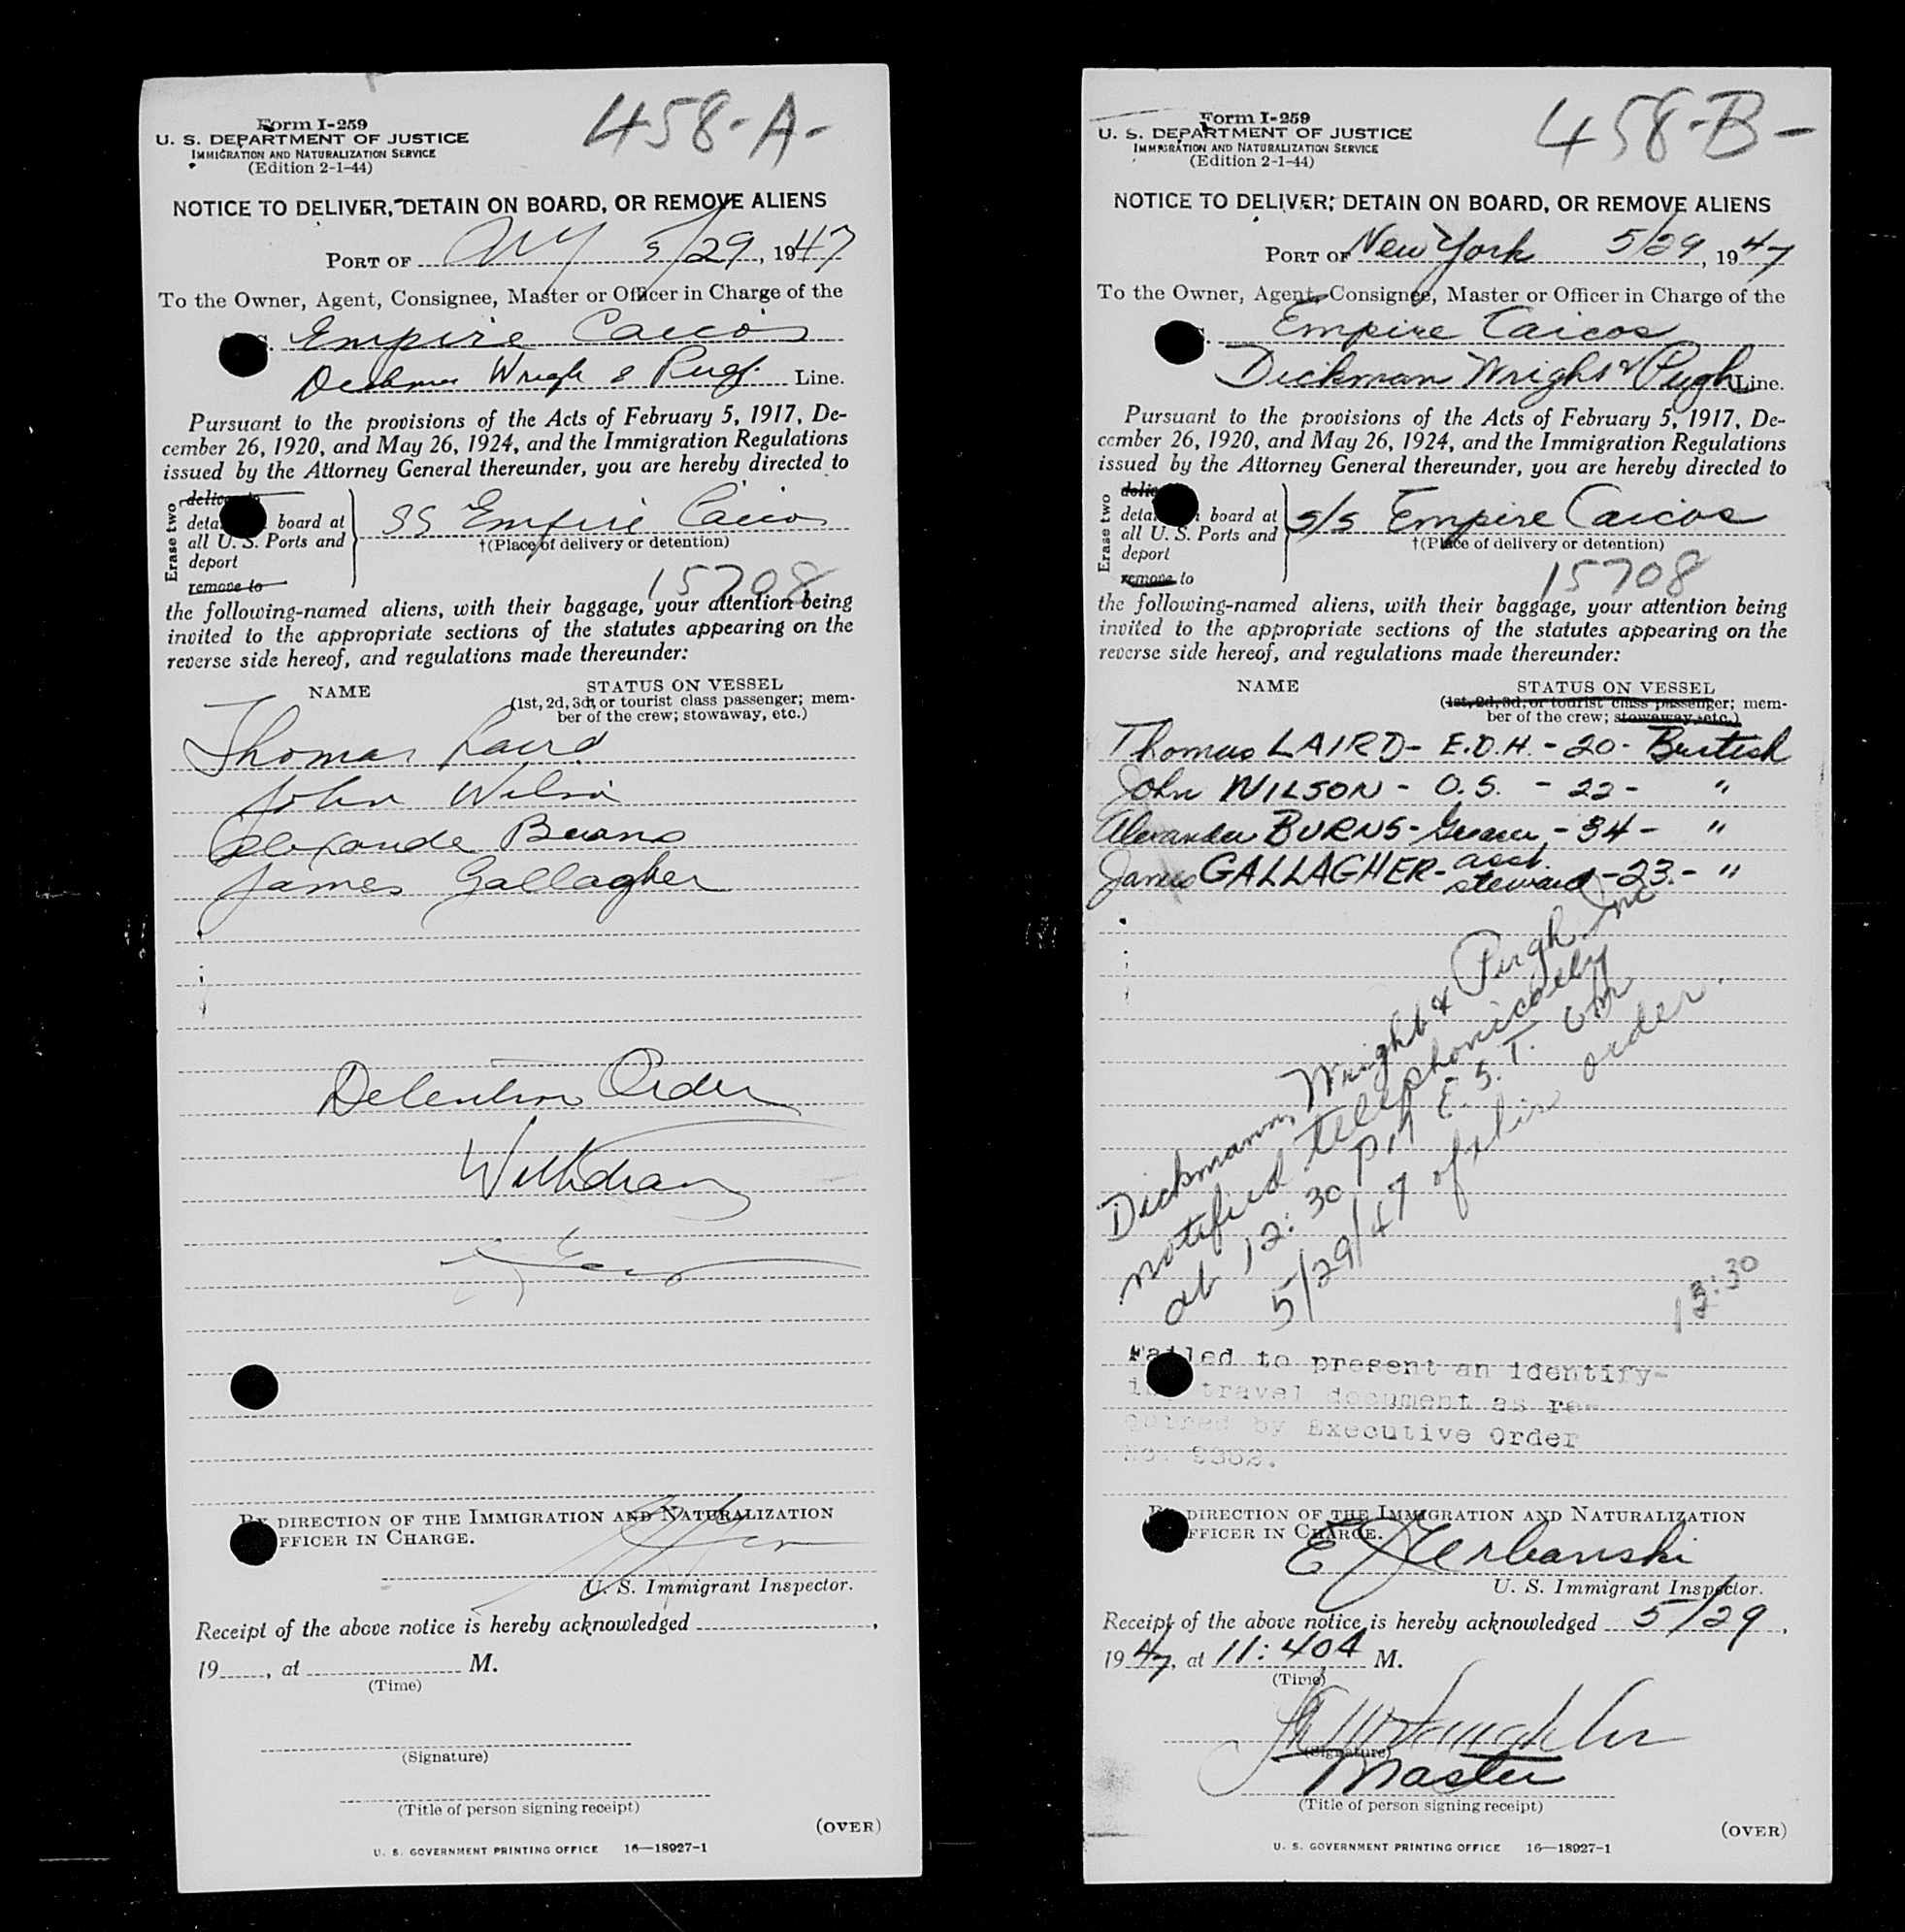 458-A-
Form I-259
U. S. DEPARTMENT OF JUSTICE
IMMIGRATION AND NATURALIZATION SERVICE
(Edition 2-1-44)
NOTICE TO DELIVER, DETAIN ON BOARD, OR REMOVE ALIENS
PORT OF NY 5/29, 1947
To the Owner, Agent, Consignee, Master or Officer in Charge of the
Empire Caicos
Wright & Pugh Line.
Pursuant to the provisions of the Acts of February 5, 1917, De-
cember 26, 1920, and May 26, 1924, and the Immigration Regulations
issued by the Attorney General thereunder, you are hereby directed to
Erase two
deliver to
detain board at
all U. S. Ports and
deport
remove to
SS Empire Caicos
†(Place of delivery or detention)
15708
the following-named aliens, with their baggage, your attention being
invited to the appropriate sections of the statutes appearing on the
reverse side hereof, and regulations made thereunder:
NAME STATUS ON VESSEL
(1st, 2d, 3d, or tourist class passenger; mem-
ber of the crew; stowaway, etc.)
Thomas Laird
John Wilson
Alexander Burns
James Gallagher
Detention Order
Withdrawn
BY DIRECTION OF THE IMMIGRATION AND NATURALIZATION
OFFICER IN CHARGE.
U. S. Immigrant Inspector.
Receipt of the above notice is hereby acknowledged ,
19 , at M.
(Time)
(Signature)
(Title of person signing receipt)
(OVER)
U. S. GOVERNMENT PRINTING OFFICE 16—18927-1
458-B-
Form I-259
U. S. DEPARTMENT OF JUSTICE
IMMIGRATION AND NATURALIZATION SERVICE
(Edition 2-1-44)
NOTICE TO DELIVER, DETAIN ON BOARD, OR REMOVE ALIENS
PORT OF New York 5/29, 1947
To the Owner, Agent, Consignee, Master or Officer in Charge of the
Empire Caicos
Dickman Wright & Pugh Line.
Pursuant to the provisions of the Acts of February 5, 1917, De-
cember 26, 1920, and May 26, 1924, and the Immigration Regulations
issued by the Attorney General thereunder, you are hereby directed to
Erase two
deliver
detain board at
all U. S. Ports and
deport
remove to
S/S Empire Caicos
†(Place of delivery or detention)
15708
the following-named aliens, with their baggage, your attention being
invited to the appropriate sections of the statutes appearing on the
reverse side hereof, and regulations made thereunder:
NAME STATUS ON VESSEL
(1st, 2d, 3d, or tourist class passenger; mem-
ber of the crew; stowaway, etc.)
Thomas LAIRD - E.D.H. - 20 - British
John WILSON - O.S. - 22 - "
Alexander BURNS - Greaser - 34 - "
James GALLAGHER - asst. steward - 23. - "
Dickmann, Wright & Pugh Inc
notified telephonically
at 12:30 PM E.S.T. on
5/29/47 of this order.
Failed to present an identify-
ing travel document as re-
quired by Executive Order
No. 9352.
BY DIRECTION OF THE IMMIGRATION AND NATURALIZATION
OFFICER IN CHARGE.
U. S. Immigrant Inspector.
Receipt of the above notice is hereby acknowledged 5/29,
1947, at 11:40 A M.
(Time)
(Signature)
Master
(Title of person signing receipt)
(OVER)
U. S. GOVERNMENT PRINTING OFFICE 16—18927-1